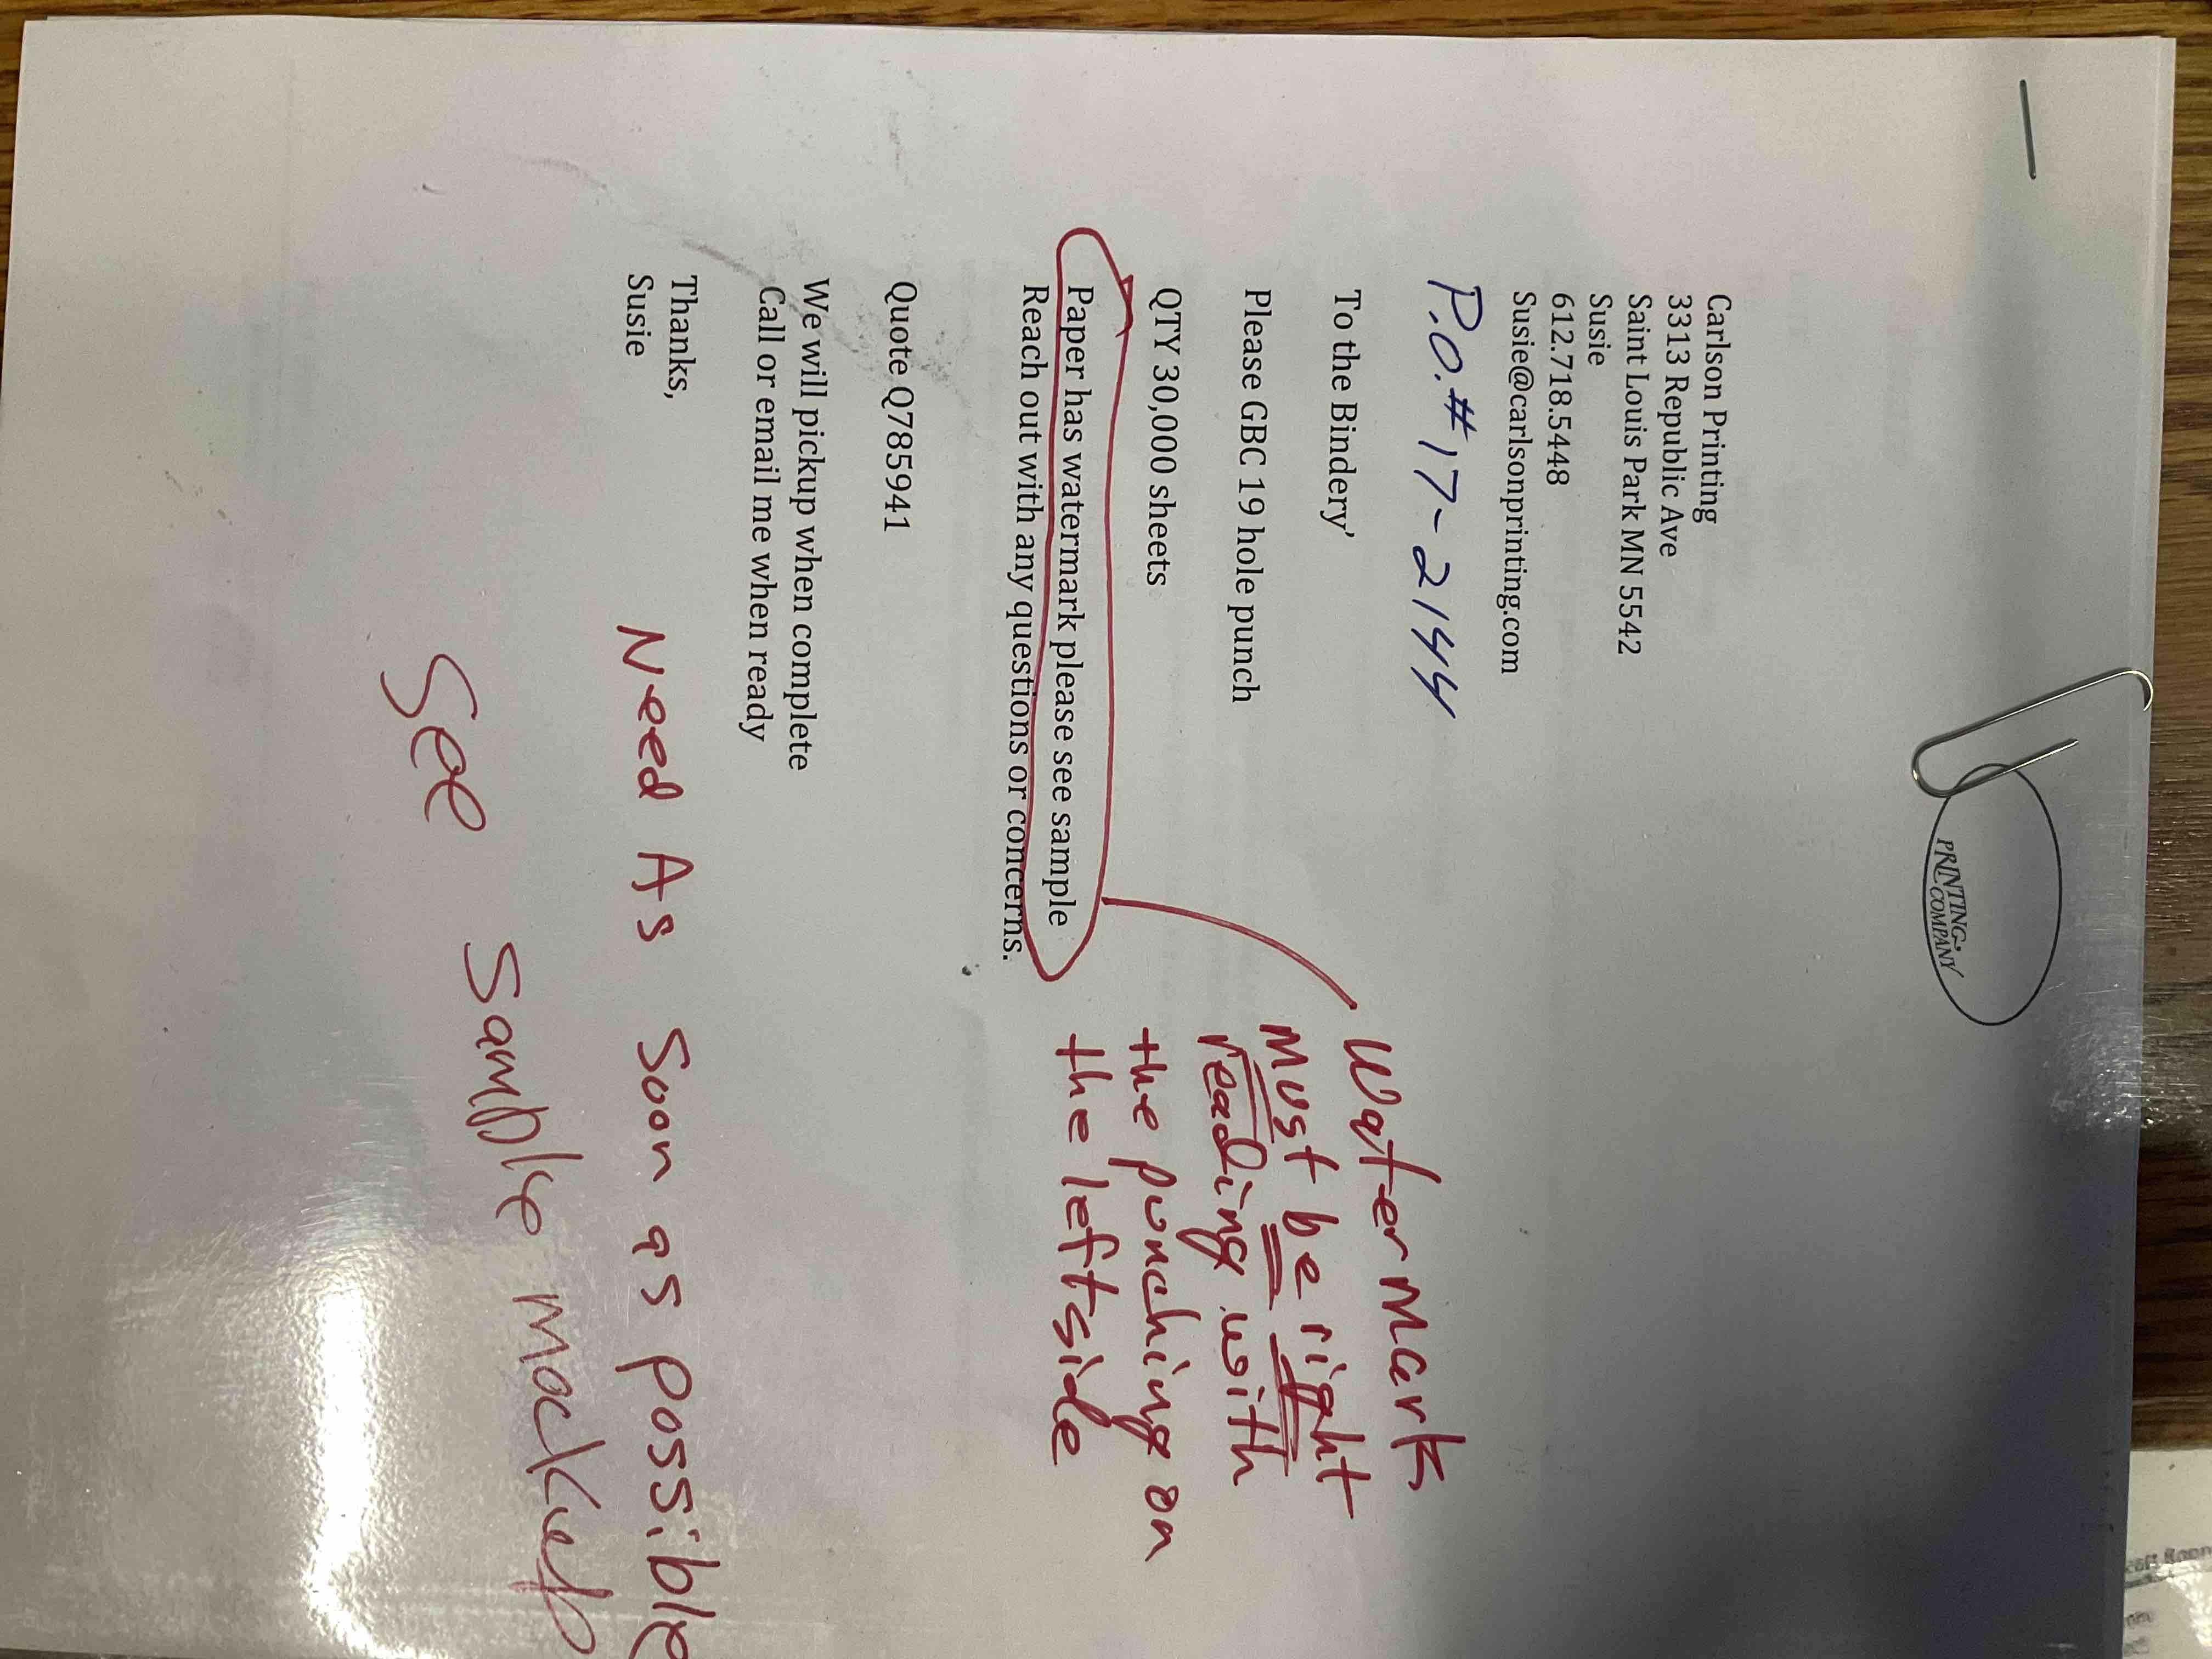 PRINTING
COMPANY
Carlson Printing
3313 Republic Ave
Saint Louis Park MN 5542
Susie
612.718.5448
Susie@carlsonprinting.com
P.O.#17-2144
To the Bindery'
Please GBC 19 hole punch
QTY 30,000 sheets
Paper has watermark please see sample
Reach out with any questions or concerns.
Watermark
must be right
reading with
the punching on
the left side
Quote Q785941
We will pickup when complete
Call or email me when ready
Thanks,
Susie
Need As Soon as possible
See Sample mockup